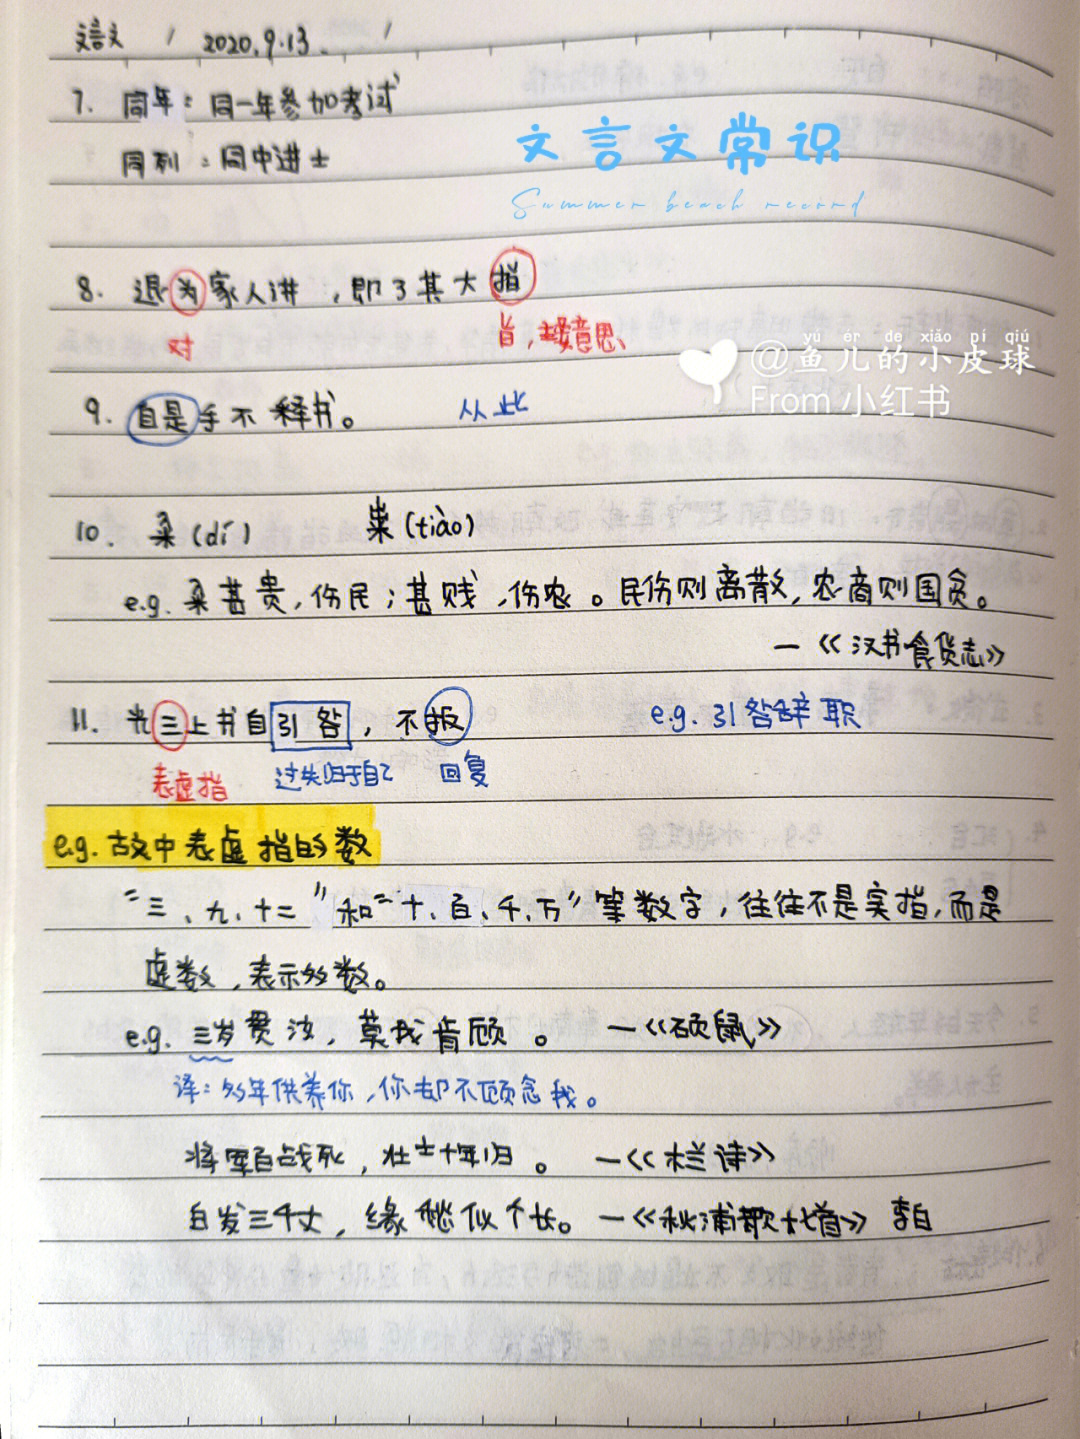 文言文 / 2020.9.13. /
7. 同年：同一年参加考试
同列：同中进士
文言文常识
Summer beach record
8. 退为家人讲，即了其大指
对 旨，主要意思
yu er de xiǎo pí qiú
@鱼儿的小皮球
From 小红书
9. 自是手不释书。 从此
10. 籴(dí) 粜(tiào)
e.g. 籴甚贵，伤民；甚贱，伤农。民伤则离散，农商则国贫。
—《汉书食货志》
11. 光三上书自引咎，不报 e.g. 引咎辞职
表虚指 过失归于自己 回复
e.g. 古文中表虚指的数
“三、九、十二”和“十、百、千、万”等数字，往往不是实指，而是
虚数，表示多数。
e.g. 三岁贯汝，莫我肯顾。 —《硕鼠》
译：多年供养你，你却不顾念我。
将军百战死，壮士十年归。 —《木兰诗》
白发三千丈，缘愁似个长。 —《秋浦歌十七首》 李白